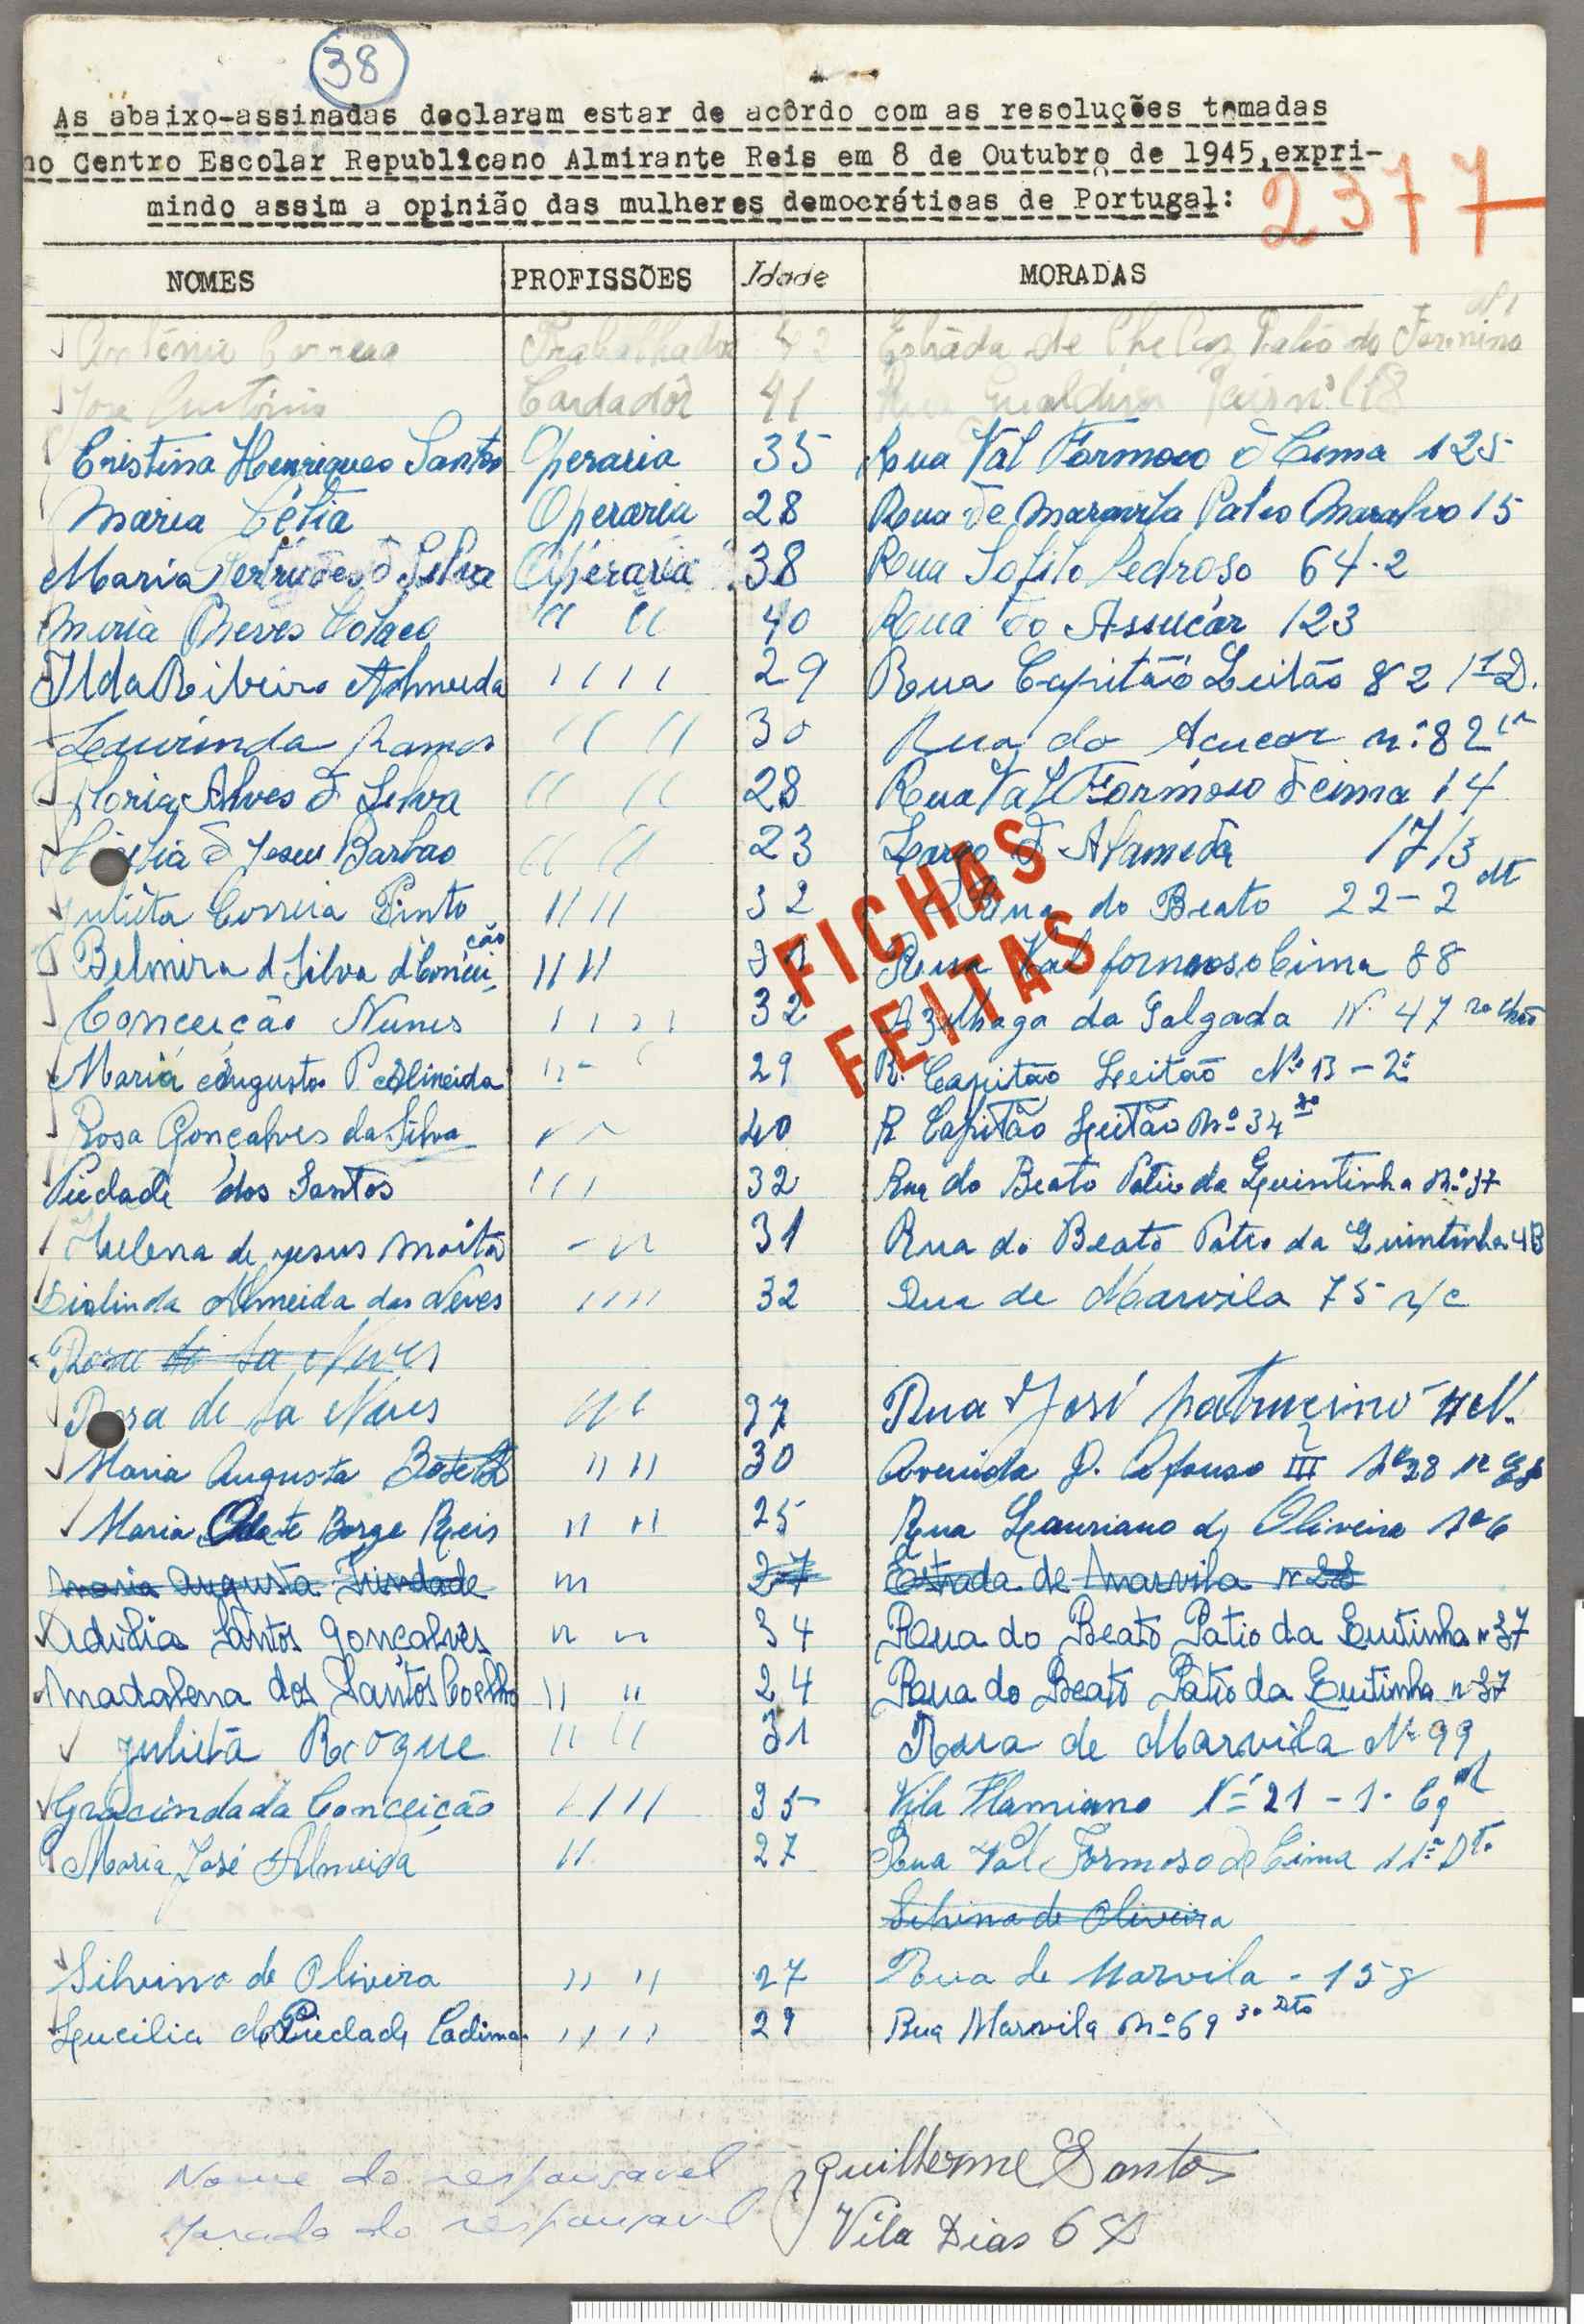 38
As abaixo-assinadas declaram estar de acôrdo com as resoluções tomadas
no Centro Escolar Republicano Almirante Reis em 8 de Outubro de 1945, expri-
mindo assim a opinião das mulheres democráticas de Portugal:
2377
NOMES PROFISSÕES Idade MORADAS
António Correia Trabalhador 42 Estrada de Chelas
José António Cardadôr 41 Rua
Cristina Henriques Santos Operaria 35 Rua Val Formoso d Cima 125
Maria Célia Operaria 28 Rua de Maravila Pateo Marialvo 15
Maria Gertrudes d Silva Operaria 38 Rua Pedroso 64-2
Maria Neves Colaco " " 40 Rua do Assucar 123
Ilda Ribeiro Almeida " " 29 Rua Capitão Leitão 82 1º D.
Laurinda Ramos " " 30 Rua do Açucar n.º 82
Maria Alves d Silva " " 28 Rua Val Formoso d cima 14
d Jesus Barbao " " 23 Largo d Alameda 17/3
Julieta Correia Pinto " " 32 Rua do Beato 22-2 dt
Belmira d Silva d Concei-ção " " 31 Rua Val formoso Cima 88
Conceição Nunes " " 32 Azinhaga da Salgada N. 47
Maria Augusta P Almeida " " 29 R. Capitão Leitão Nº 13 - 2º
Rosa Gonçalves da Silva " 40 R Capitão Leitão Nº 34
Piedade dos Santos " 32 Rua do Beato Patio da Quintinha Nº 37
Helena de jesus moita " 31 Rua do Beato Patio da Quintinha 43
Diolinda Almeida das Neves " " 32 Rua de Marvila 75 r/c
Rosa de Sa Neves
Rosa de Sa Neves " " 27 Rua José patrucinio
Maria Augusta " " 30 Avenida D. Afonso III Nº 28
Maria Odete Borge Reis " " 25 Rua Lauriano d Oliveira Nº 6
Maria Augusta Trindade " 27 Estrada de Marvila n 28
Adilia Santos Gonçalves " " 34 Rua do Beato Patio da Cuitinha n 37
Madalena dos Santos Coelho " " 24 Rua do Beato Patio da Cuitinha n 37
Julieta Roque " " 31 Rua de Marvila Nº 99
Gracinda da Conceição " " 35 Vila Flamiano Nº 21 - 1.
Maria José Almeida " 27 Rua Val Formoso de Cima 11º Dt.
Silvina de Oliveira
Silvina de Oliveira " " 27 Rua de Marvila - 15
Lucilia da Piedade Cadima " " 29 Rua Marvila Nº 69 3º Dto
FICHAS
FEITAS
Nome do responsavel Guilherme Santos
Morada do responsavel Vila Dias 68